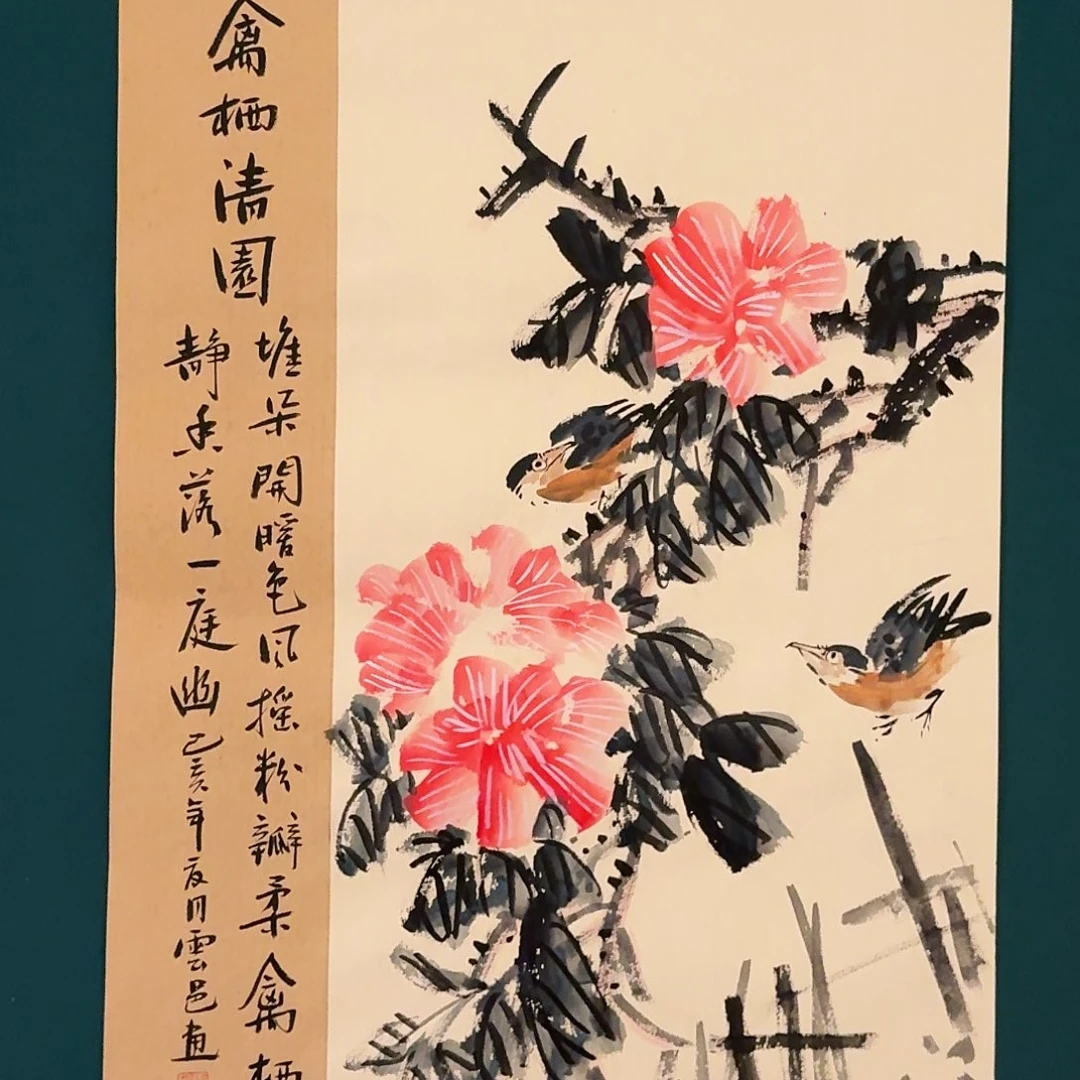 禽栖清園
堆朵開暖色風摇粉瓣柔禽栖
静香落一庭幽己亥年夏月雲邑画